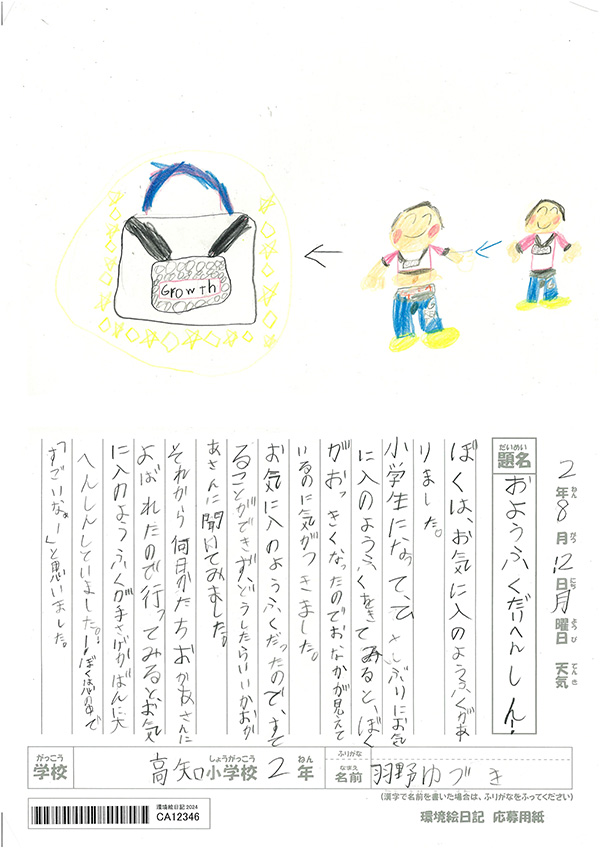 Growth
2年8月12日月曜日 天気
ねん がつ にち ようび てんき
だいめい
題名 おようふくだいへんしん!
ぼくは、お気に入のようふくがあ
りました。
小学生になって、ひさしぶりにお気
に入のようふくをきてみると、ぼく
がおっきくなったのでおなかが見えて
いるのに気がつきました。
お気に入のようふくだったので、すて
ることができず、どうしたらいいかおか
あさんに聞いてみました。
それから何日かたちおかあさんに
よばれたので行ってみると、お気
に入のようふくが手さげかばんに大
へんしんしていました。!ぼくは思の中で
「すごいなぁー」と思いました。
がっこう しょうがっこう ねん
学校 高知小学校 2年
ふりがな
なまえ
名前 羽野ゆづき
(漢字で名前を書いた場合は、ふりがなをふってください)
環境絵日記2024
CA12346
環境絵日記 応募用紙